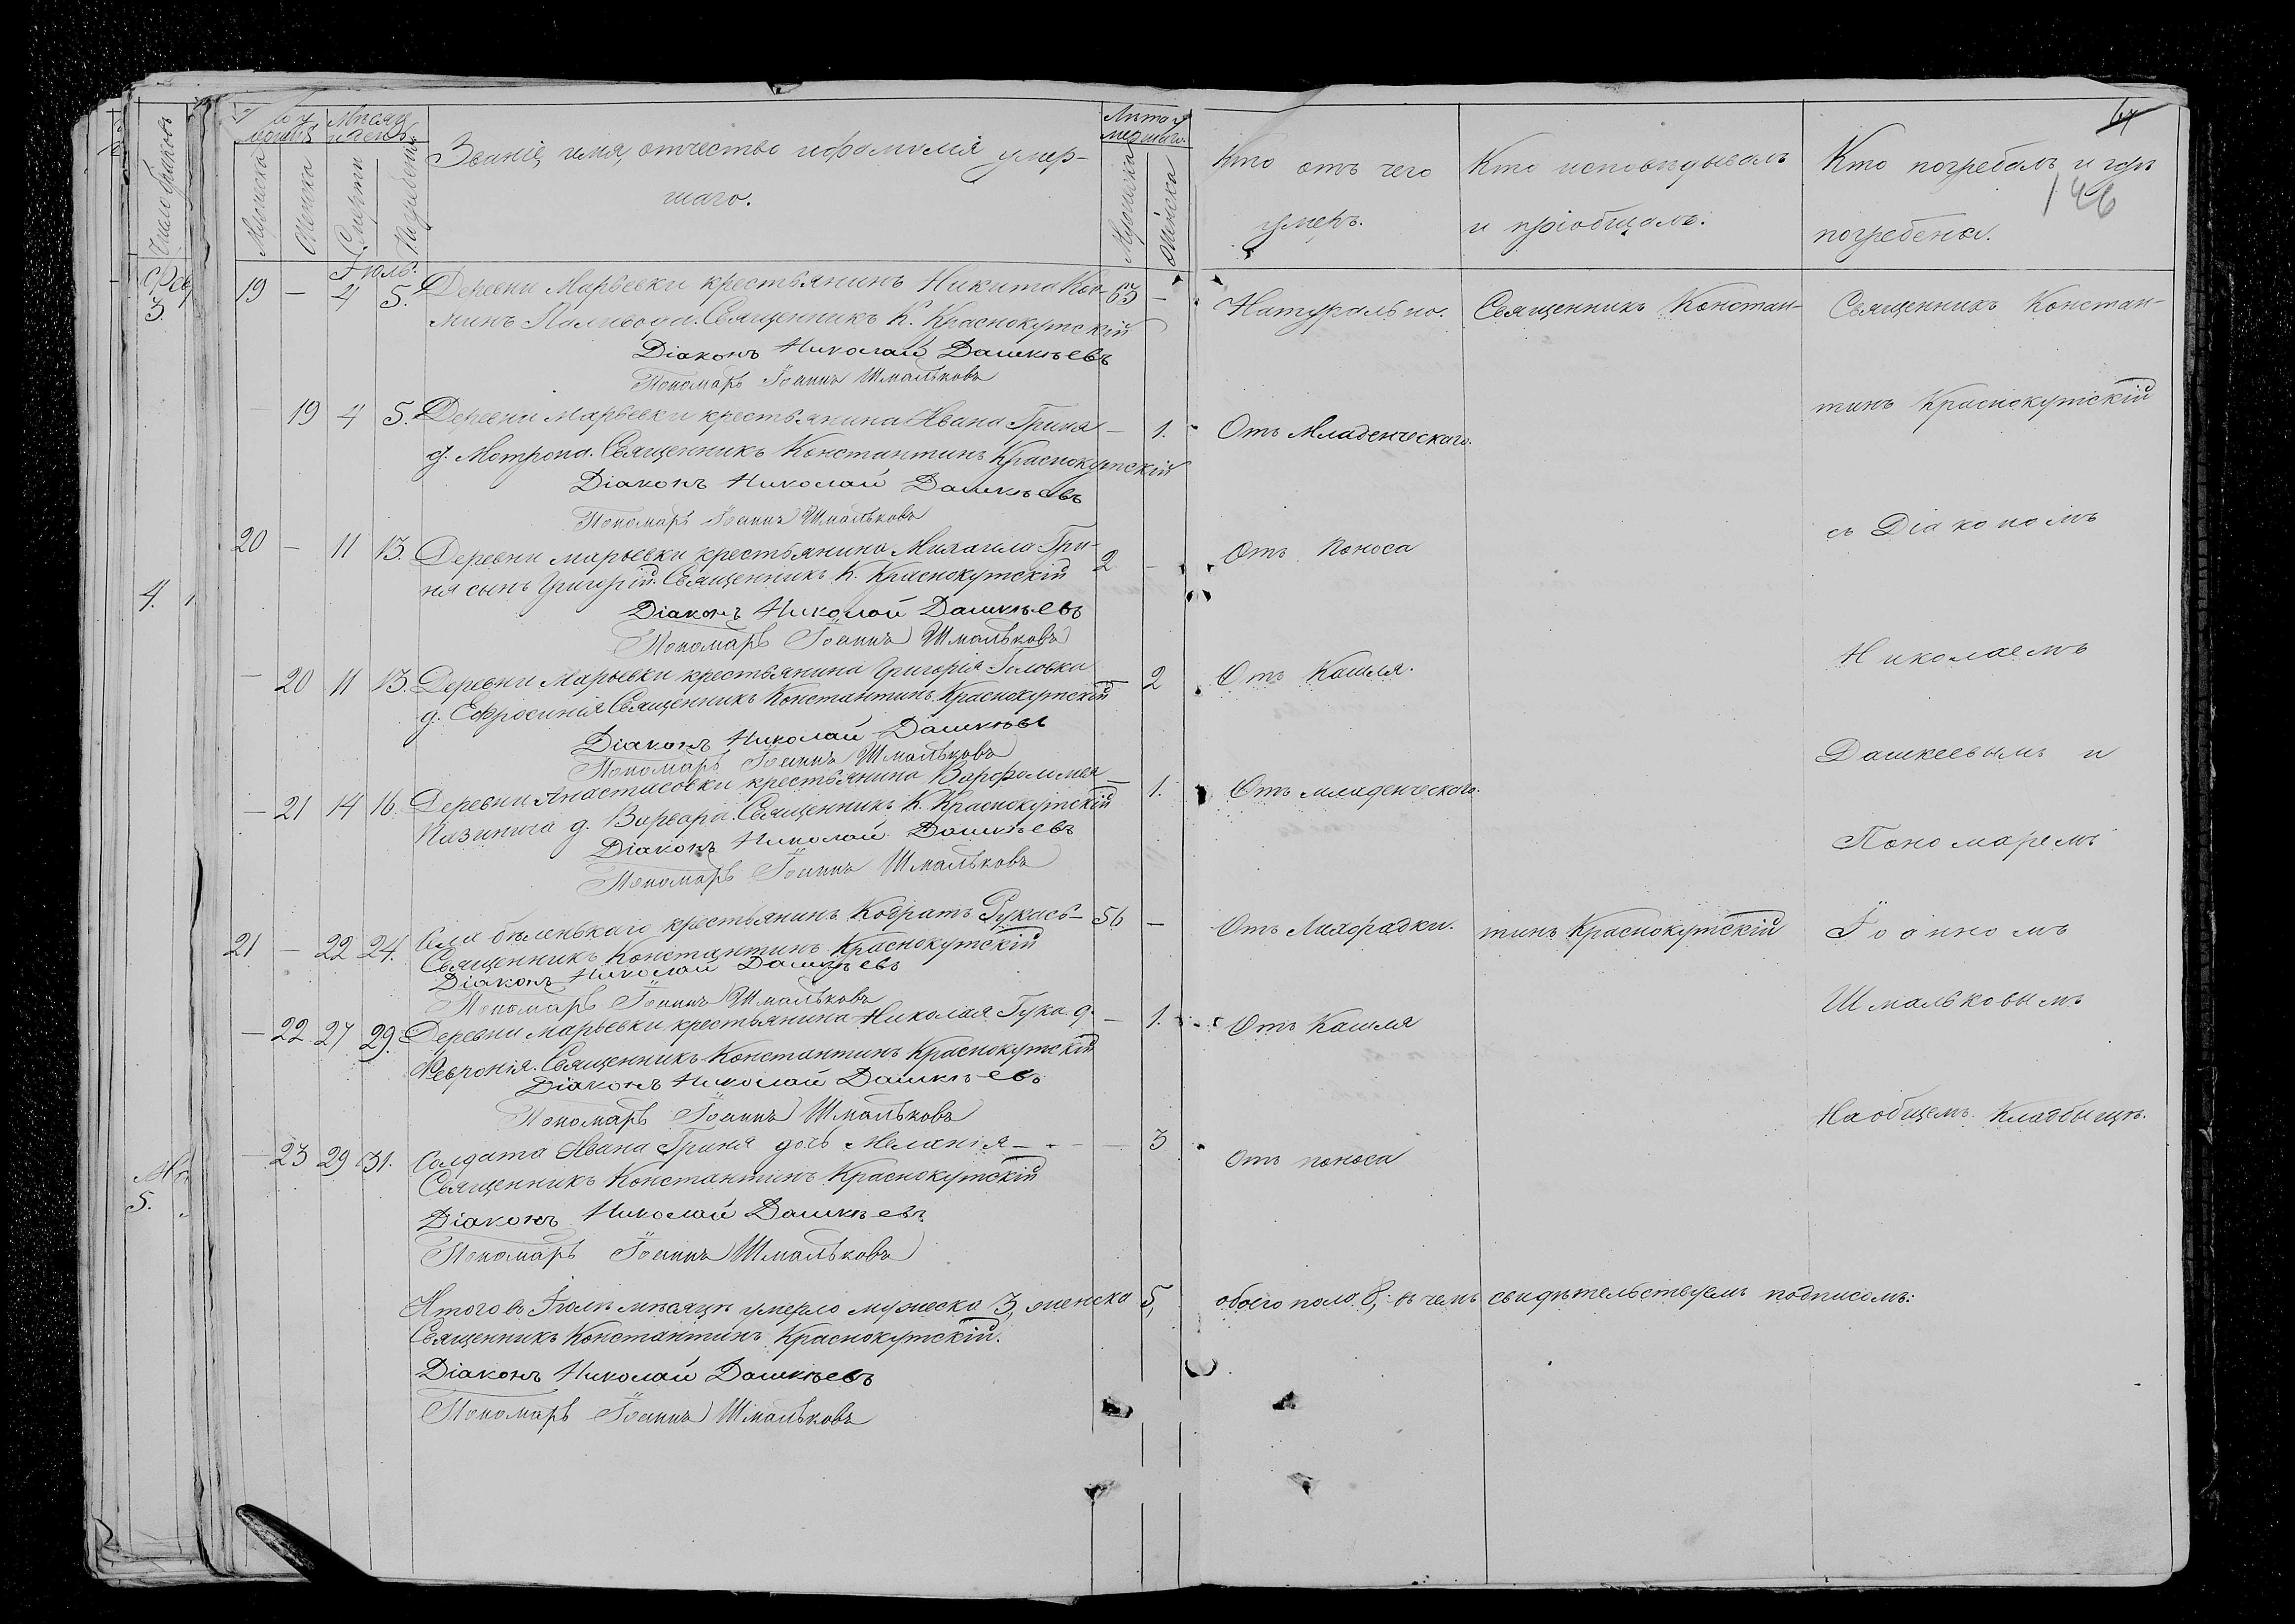 Мѣсяцъ
и день.
Лѣта у-
мершаго.
Мужеска
Женска
Смерти
Погребенія
Званіе, имя, отчество и фамилія умер-
шаго.
Мужеска
Женска
Кто отъ чего
умеръ.
Кто исповѣдывалъ
и пріобщалъ.
Кто погребалъ и гдѣ
погребены.
64
146
Фев
3.
4.
5.
Іюль.
19 — 4 5. Деревни Марьевки крестьянинъ Никита Кос- 63 — Натурально. Священникъ Констан- Священникъ Констан-
минъ Паливода. Священникъ К. Краснокутскій
Діаконъ Николай Дашкѣевъ
Пономарь Іоаннъ Шмальковъ
тинъ Краснокутскій
— 19 4 5. Деревни Марьевки крестьянина Ивана Гриня — 1. Отъ Младенческаго.
д. Мотрона. Священникъ Константинъ Краснокутскій
Діаконъ Николай Дашкѣевъ
Пономарь Іоаннъ Шмальковъ
съ Діакономъ
20 — 11 13. Деревни Марьевки крестьянина Михаила Гри- 2 — Отъ поноса
ня сынъ Григорій. Священникъ К. Краснокутскій
Діаконъ Николай Дашкѣевъ
Пономарь Іоаннъ Шмальковъ
Николаемъ
— 20 11 13. Деревни Марьевки крестьянина Григорія Головка — 2 Отъ Кашля.
д. Ефросинія Священникъ Константинъ Краснокутскій
Діаконъ Николай Дашкѣевъ
Пономарь Іоаннъ Шмальковъ
Дашкеевымъ и
— 21 14 16. Деревни Анастасовки крестьянина Варфоломея — 1. Отъ младенческаго.
д. Варвара. Священникъ К. Краснокутскій
Діаконъ Николай Дашкѣевъ
Пономарь Іоаннъ Шмальковъ
Пономаремъ
21 — 22 24. Села бѣленькаго крестьянинъ Кодратъ Рукась— 56 — Отъ Лихорадки. тинъ Краснокутскій Іоанномъ
Священникъ Константинъ Краснокутскій
Діаконъ Николай Дашкѣевъ
Пономарь Іоаннъ Шмальковъ
Шмальковымъ
— 22. 27 29. Деревни Марьевки крестьянина Николая Гука д. — 1. Отъ Кашля
Февронія. Священникъ Константинъ Краснокутскій
Діаконъ Николай Дашкѣевъ
Пономарь Іоаннъ Шмальковъ
На общемъ Кладбищѣ.
— 23 29 31. Солдата Ивана Гриня дочь Меланія — — 3 Отъ поноса
Священникъ Константинъ Краснокутскій
Діаконъ Николай Дашкѣевъ
Пономарь Іоаннъ Шмальковъ
Итого въ Іюлѣ мѣсяцѣ умерло мужеска 3, женска 5, обоего пола 8; въ чемъ свидѣтельствуемъ подписомъ:
Священникъ Константинъ Краснокутскій.
Діаконъ Николай Дашкѣевъ
Пономарь Іоаннъ Шмальковъ